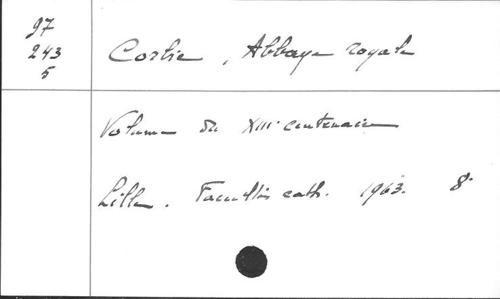 97
243
5
Corbie, Abbaye royale
Volume du XIIIe centenaire
Lille. Facultés cath. 1963. 8°